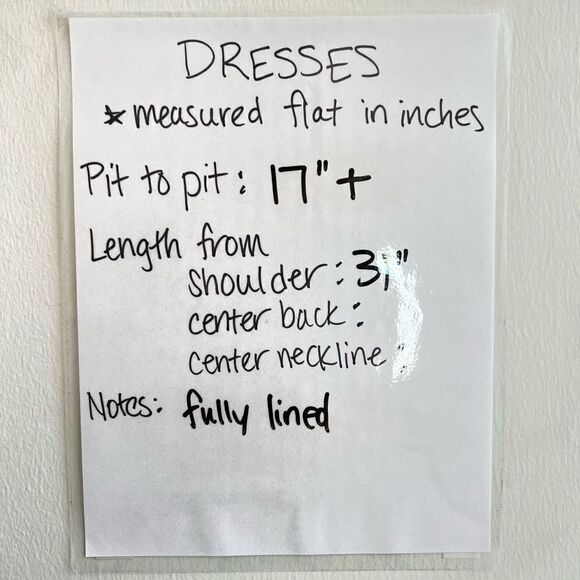 DRESSES
* measured flat in inches
Pit to pit: 17"+
Length from
shoulder:
center back:
center neckline:
Notes: fully lined